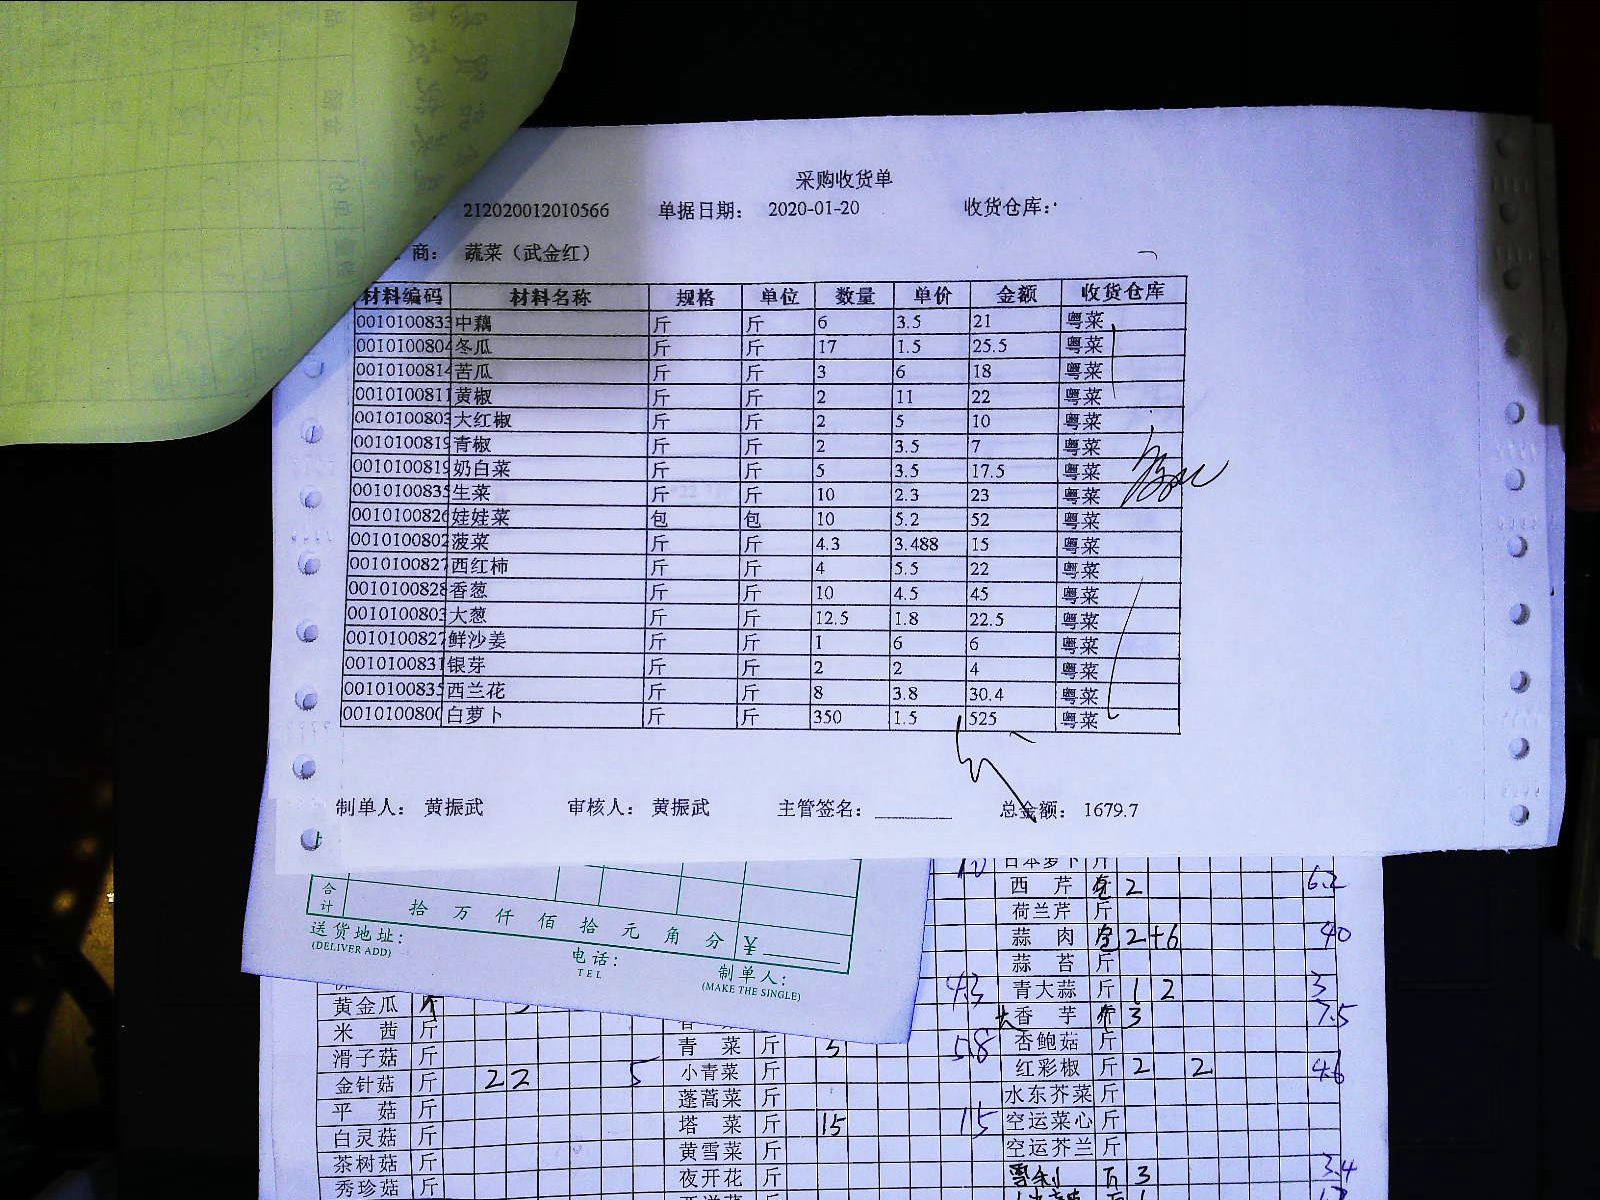 采购收货单
212020012010566 单据日期： 2020-01-20 收货仓库：
商： 蔬菜（武金红）
材料编码 材料名称 规格 单位 数量 单价 金额 收货仓库
0010100833 中藕 斤 斤 6 3.5 21 粤菜
0010100804 冬瓜 斤 斤 17 1.5 25.5 粤菜
0010100814 苦瓜 斤 斤 3 6 18 粤菜
0010100811 黄椒 斤 斤 2 11 22 粤菜
0010100803 大红椒 斤 斤 2 5 10 粤菜
0010100819 青椒 斤 斤 2 3.5 7 粤菜
0010100819 奶白菜 斤 斤 5 3.5 17.5 粤菜
0010100835 生菜 斤 斤 10 2.3 23 粤菜
0010100826 娃娃菜 包 包 10 5.2 52 粤菜
0010100802 菠菜 斤 斤 4.3 3.488 15 粤菜
0010100827 西红柿 斤 斤 4 5.5 22 粤菜
0010100828 香葱 斤 斤 10 4.5 45 粤菜
0010100803 大葱 斤 斤 12.5 1.8 22.5 粤菜
0010100827 鲜沙姜 斤 斤 1 6 6 粤菜
0010100831 银芽 斤 斤 2 2 4 粤菜
0010100835 西兰花 斤 斤 8 3.8 30.4 粤菜
0010100800 白萝卜 斤 斤 350 1.5 525 粤菜
制单人： 黄振武 审核人： 黄振武 主管签名： 总金额： 1679.7
合计 拾 万 仟 佰 拾 元 角 分 ¥
送货地址：
(DELIVER ADD)
电话：
TEL
制单人：
(MAKE THE SINGLE)
10 日本萝卜 斤
西芹 2 6.2
荷兰芹 斤
蒜肉 2+6 40
蒜苔 斤
4.3 青大蒜 斤 1 2 3
黄金瓜 斤 香芋 3 7.5
米茜 斤 青菜 斤 5 5.8 杏鲍菇 斤
滑子菇 斤 小青菜 斤 红彩椒 斤 2 2 4.6
金针菇 斤 22 5 蓬蒿菜 斤 水东芥菜 斤
平菇 斤 塔菜 斤 15 15 空运菜心 斤
白灵菇 斤 黄雪菜 斤 空运芥兰 斤
茶树菇 斤 夜开花 斤 3 3.4
秀珍菇 斤